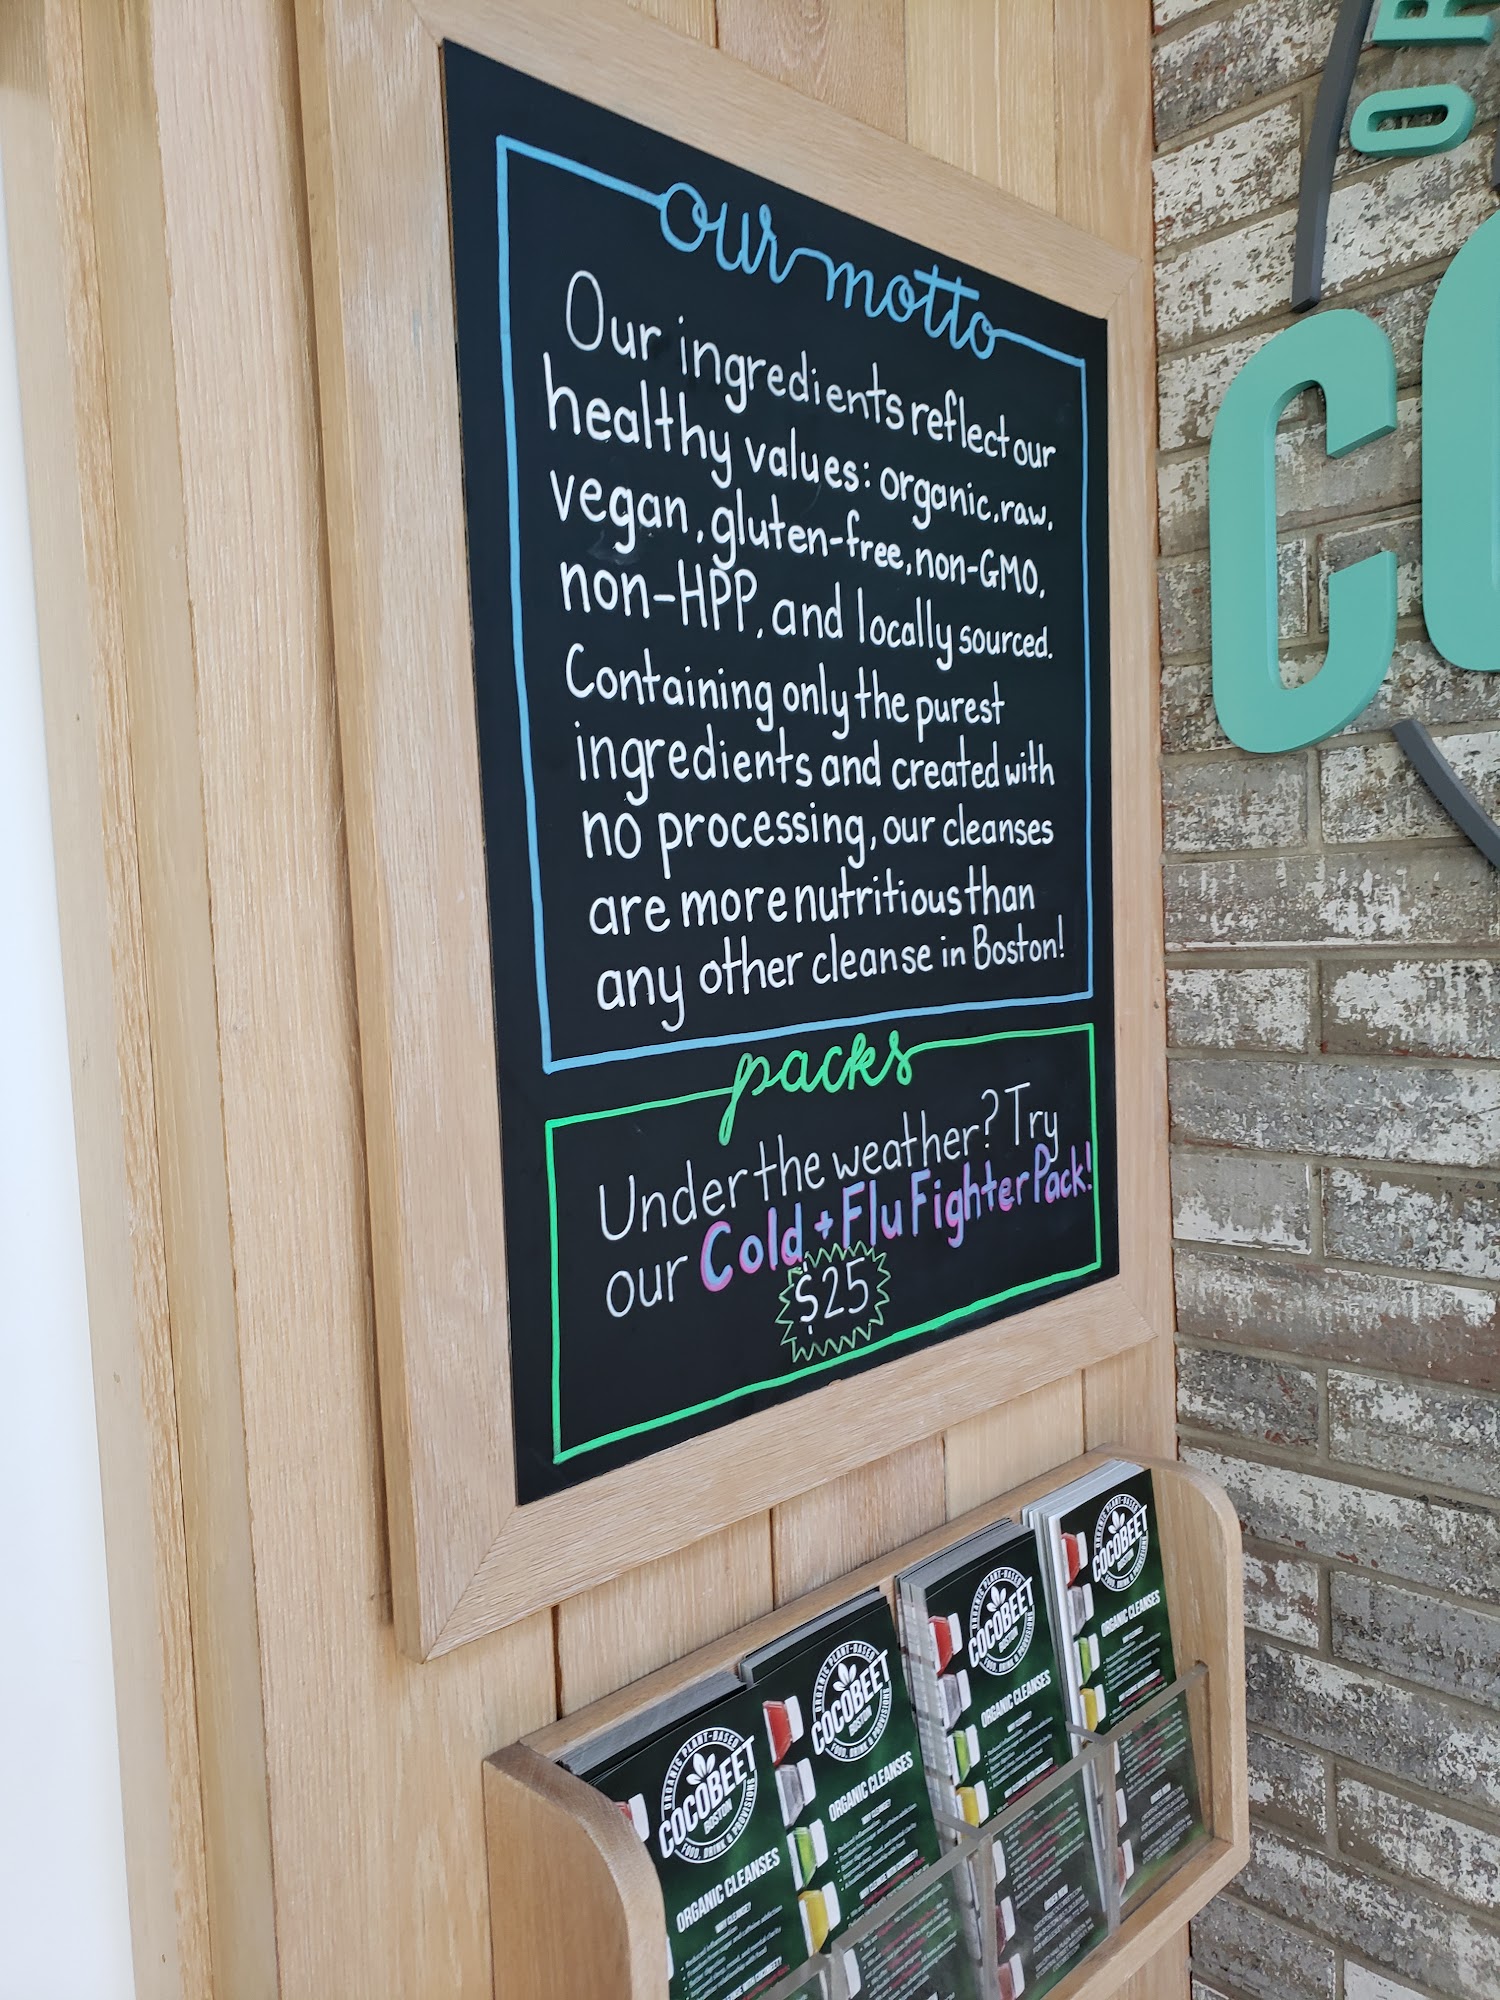 our motto
Our ingredients reflect our
healthy values: organic, raw,
vegan, gluten-free, non-GMO,
non-HPP, and locally sourced.
Containing only the purest
ingredients and created with
no processing, our cleanses
are more nutritious than
any other cleanse in Boston!
packs
Under the weather? Try
our Cold + Flu Fighter Pack!
$25
OR
CO
ORGANIC PLANT-BASED
COCOBEET
BOSTON
FOOD, DRINK & PROVISIONS
ORGANIC CLEANSES
WHY CLEANSE?
ORGANIC PLANT-BASED
COCOBEET
BOSTON
FOOD, DRINK & PROVISIONS
ORGANIC CLEANSES
WHY CLEANSE?
ORGANIC PLANT-BASED
COCOBEET
BOSTON
FOOD, DRINK & PROVISIONS
ORGANIC CLEANSES
WHY CLEANSE?
ORDER NOW
ORGANIC PLANT-BASED
COCOBEET
BOSTON
FOOD, DRINK & PROVISIONS
ORGANIC CLEANSES
WHY CLEANSE?
ORDER NOW